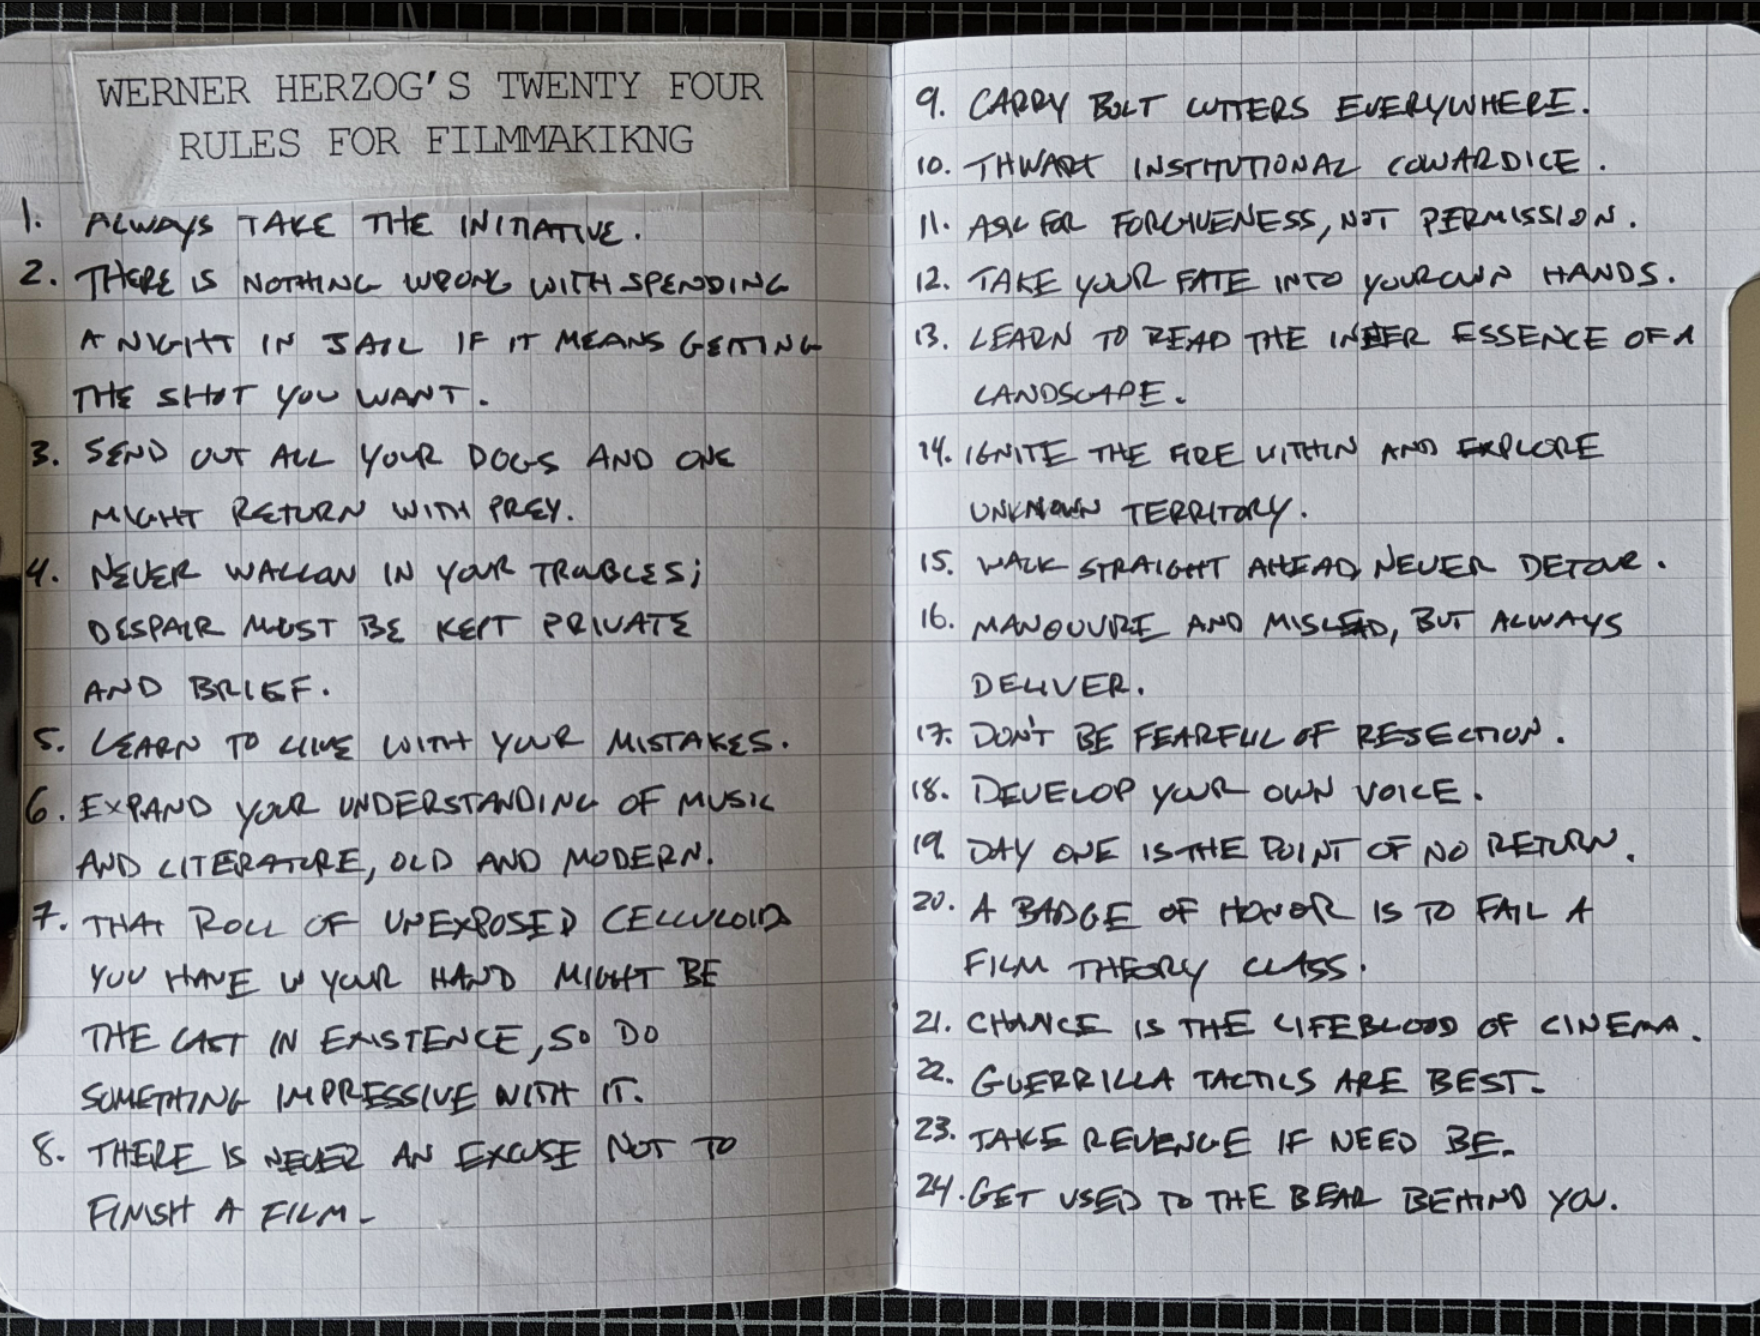 WERNER HERZOG'S TWENTY FOUR
RULES FOR FILMMAKIKNG
1. ALWAYS TAKE THE INITIATIVE.
2. THERE IS NOTHING WRONG WITH SPENDING
A NIGHT IN JAIL IF IT MEANS GETTING
THE SHOT YOU WANT.
3. SEND OUT ALL YOUR DOGS AND ONE
MIGHT RETURN WITH PREY.
4. NEVER WALLOW IN YOUR TROUBLES;
DESPAIR MUST BE KEPT PRIVATE
AND BRIEF.
5. LEARN TO LIVE WITH YOUR MISTAKES.
6. EXPAND YOUR UNDERSTANDING OF MUSIC
AND LITERATURE, OLD AND MODERN.
7. THAT ROLL OF UNEXPOSED CELLULOID
YOU HAVE IN YOUR HAND MIGHT BE
THE LAST IN EXISTENCE, SO DO
SOMETHING IMPRESSIVE WITH IT.
8. THERE IS NEVER AN EXCUSE NOT TO
FINISH A FILM.
9. CARRY BOLT CUTTERS EVERYWHERE.
10. THWART INSTITUTIONAL COWARDICE.
11. ASK FOR FORGIVENESS, NOT PERMISSION.
12. TAKE YOUR FATE INTO YOUR OWN HANDS.
13. LEARN TO READ THE INNER ESSENCE OF A
LANDSCAPE.
14. IGNITE THE FIRE WITHIN AND EXPLORE
UNKNOWN TERRITORY.
15. WALK STRAIGHT AHEAD, NEVER DETOUR.
16. MANOUVRE AND MISLEAD, BUT ALWAYS
DELIVER.
17. DON'T BE FEARFUL OF REJECTION.
18. DEVELOP YOUR OWN VOICE.
19. DAY ONE IS THE POINT OF NO RETURN.
20. A BADGE OF HONOR IS TO FAIL A
FILM THEORY CLASS.
21. CHANCE IS THE LIFEBLOOD OF CINEMA.
22. GUERRILLA TACTICS ARE BEST.
23. TAKE REVENGE IF NEED BE.
24. GET USED TO THE BEAR BEHIND YOU.